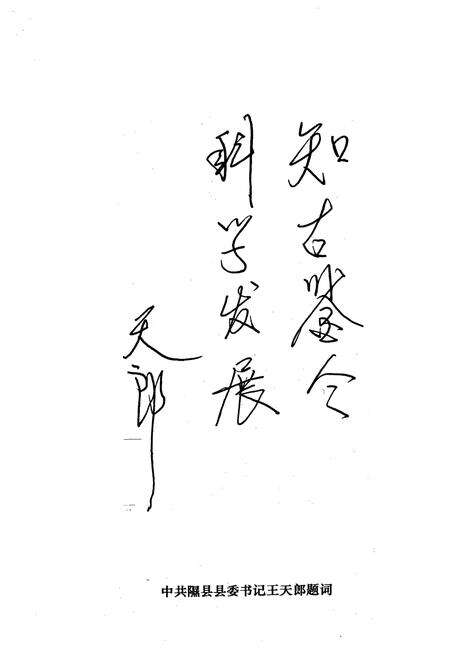 知古鉴今
科学发展
天郎
中共隰县县委书记王天郎题词